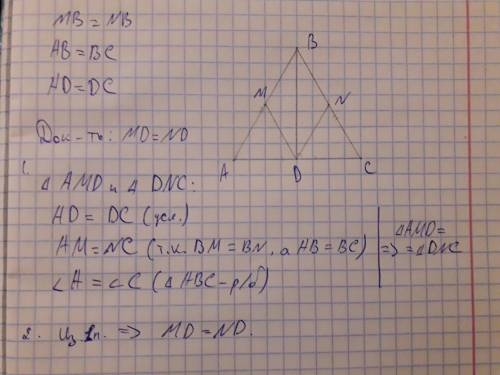 MB = NB
AB = BC
AD = DC
B
M
N
A
D
C
Док-ть: MD = ND
1.
△ AMD и △ DNC:
AD = DC (усл.)
AM = NC (т.к. BM = BN, а AB = BC)
∠A = ∠C (△ABC - р/б)
△AMD =
=> = △DNC
2. Из 1п. => MD = ND.